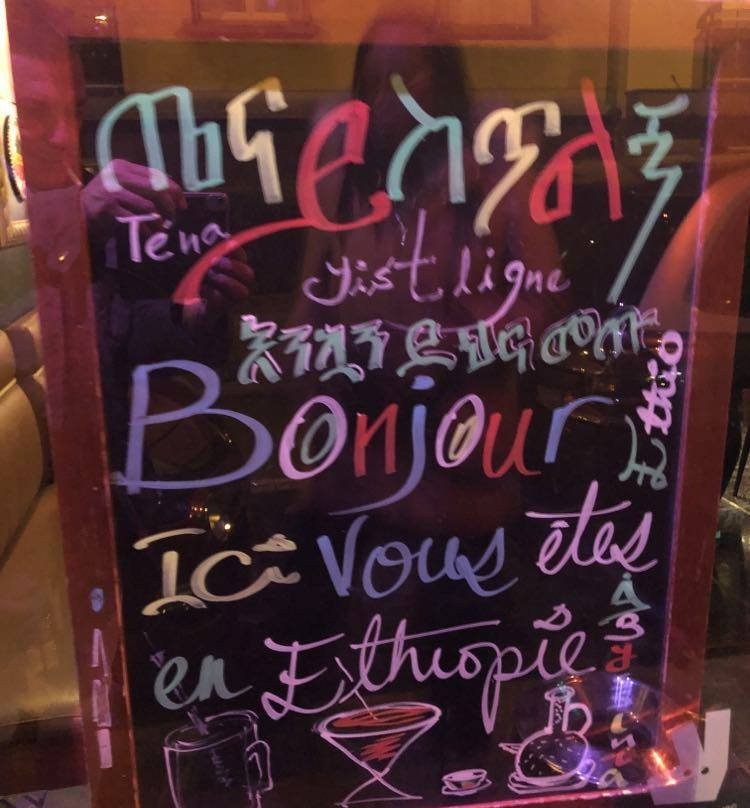 ጤናይስጥልኝ
Téna
yist ligne
እንኳን ደህና መጡ
Bonjour
Ethio
Ici Vous êtes
en Ethiopie